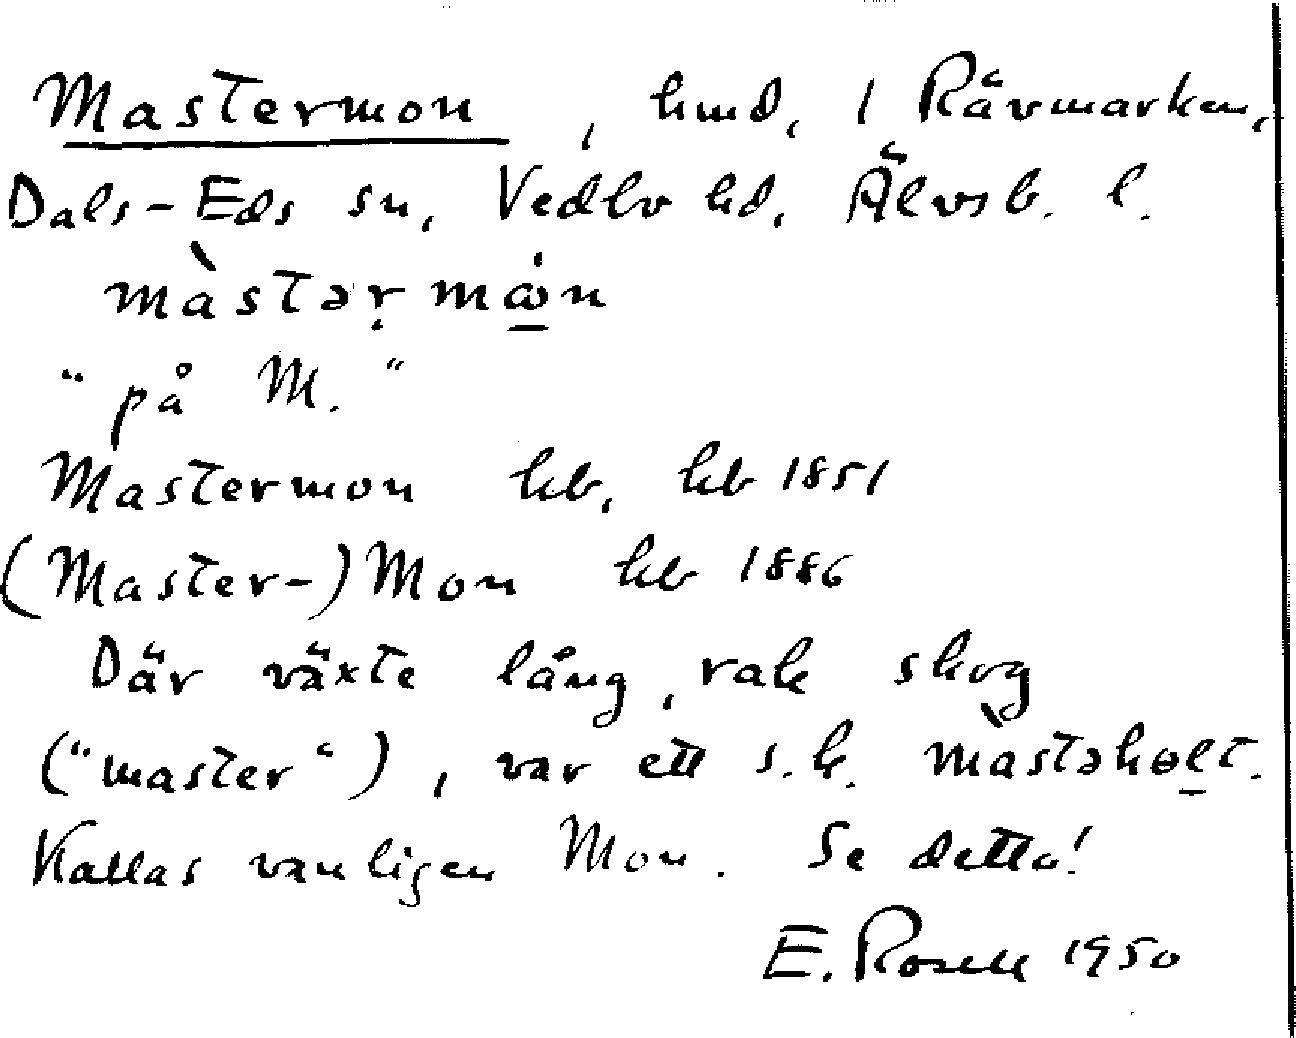 Mastermon, hmd, 1 Rävmarken,
Dals-Eds sn, Vedbo hd, Älvsb. l.
màstər̥mω̇n
"på M."
Mastermon hb, hb 1851
(Master-) Mon hb 1886
Där växte lång, rak skog
("master"), var ett s.k. màstəhɵlt.
Kallas vanligen Mon. Se detta!
E. Rosell 1950